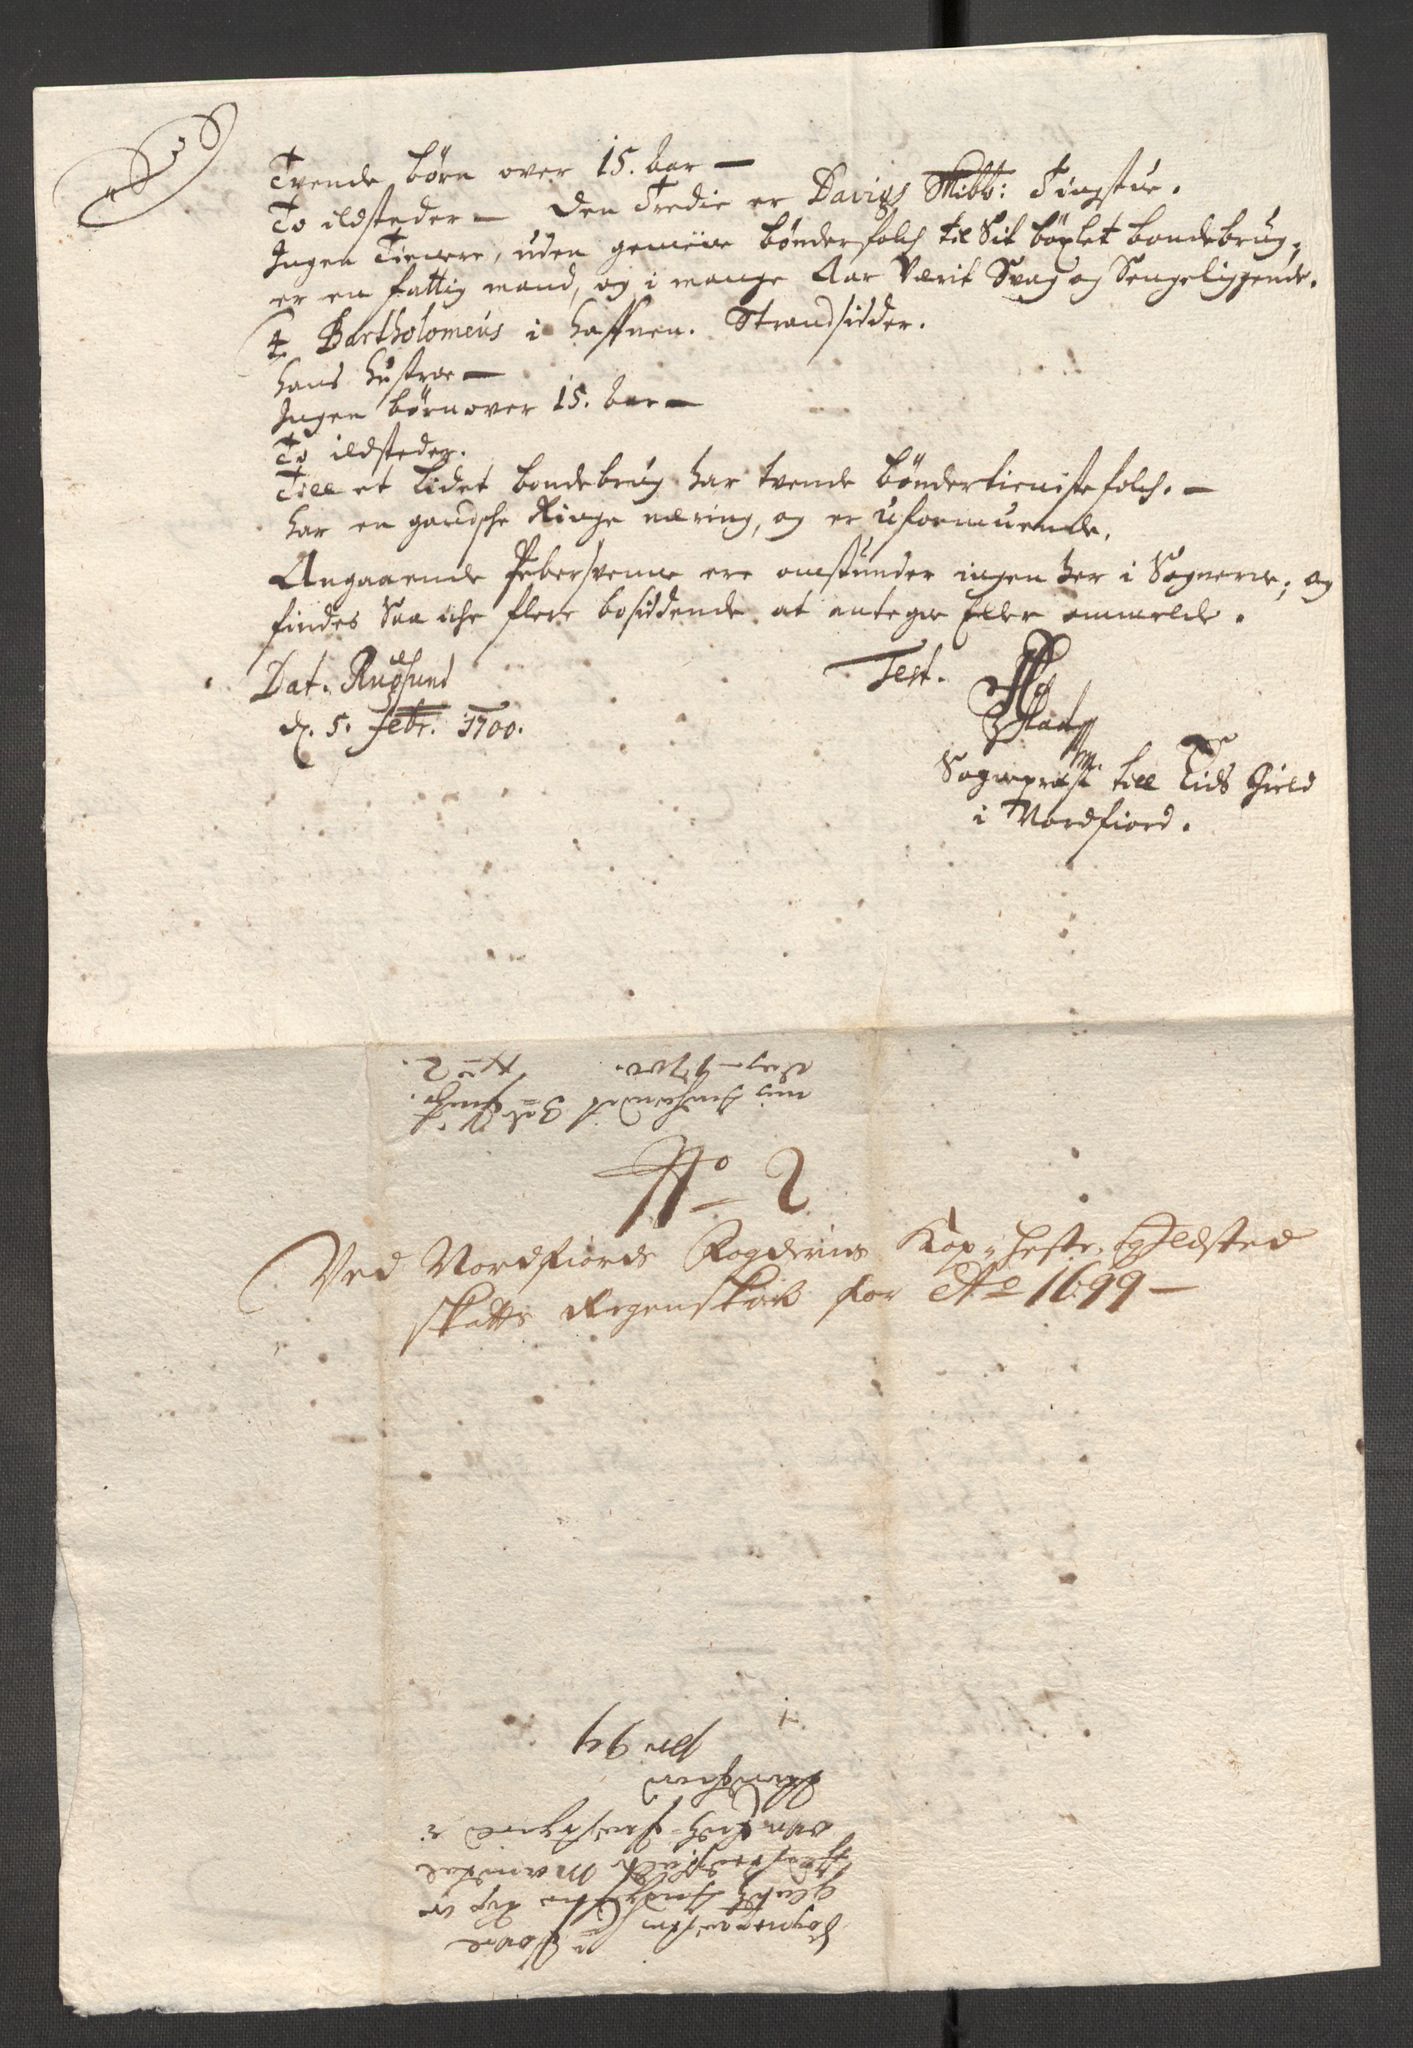 Tvende børn over 15. aar —
To ildsteder — den Tredie er Davigs Skibb: Tingstue.
Ingen Tienere, uden gemeine bønderfolch til Sit böxlet bondebrug,
er en fattig mand, og i mange Aar Værit Svag og Sengeliggende.
4. Bartholomeus i Haffnen. Strandsidder.
Hans Hustroe —
Ingen børn over 15. aar —
To ildsteder.
Till et lidet bondebrug har tvende bøndertienistefolch. —
har en gandsche Ringe næring, og er uformuende.
Angaaende Pebersvenne ere omstunder ingen her i Sognerne; og
findes Saa iche flere bosiddende at antegne Eller anmelde.
Dat. Rugsund
d. 5. Febr. 1700.
Test.
Sogneprest till Eids Gield
i Nordfiord.
No 2
Ved Nordfiords Fogderies Kop, Heste, Og Ildsted
Skatts Regenskab for Ao 1699 —